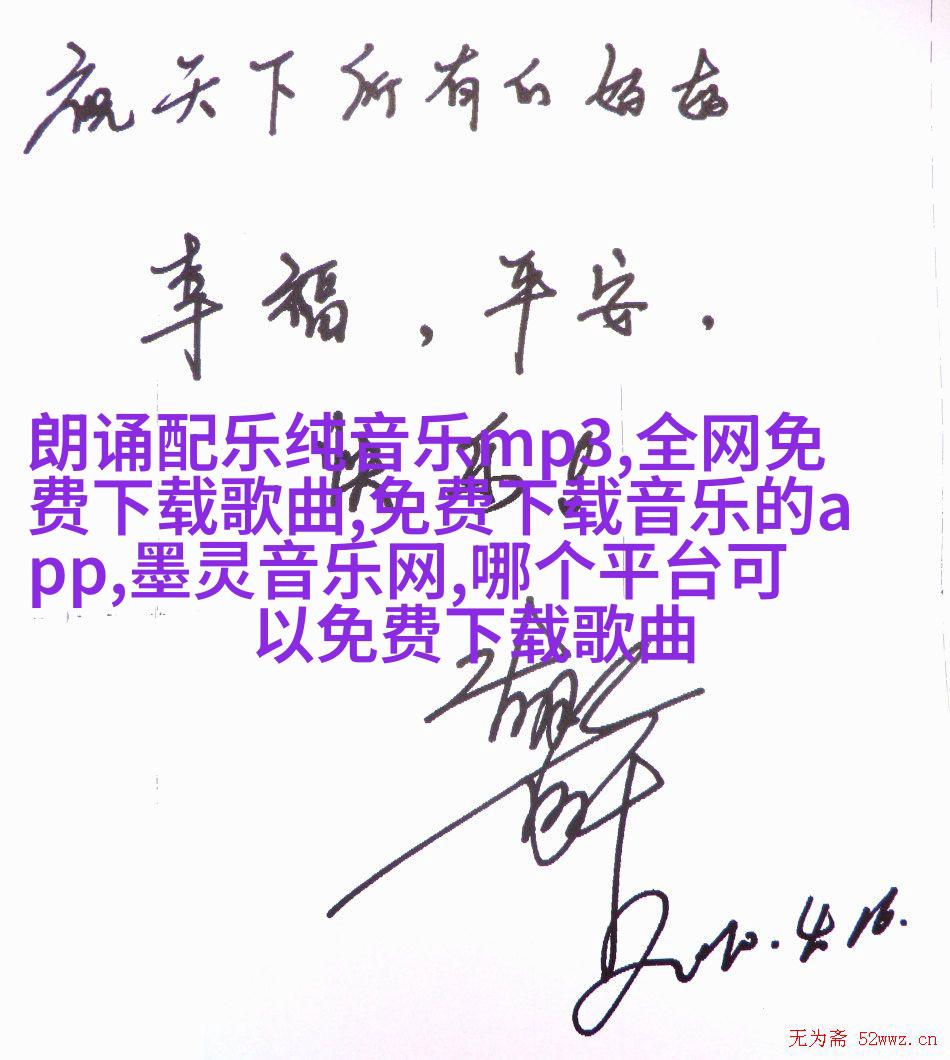 祝天下所有的妈妈
幸福，平安，
快乐！
朗诵配乐纯音乐mp3,全网免
费下载歌曲,免费下载音乐的a
pp,墨灵音乐网,哪个平台可
以免费下载歌曲
2010.4.16.
无为斋 52wwz.cn